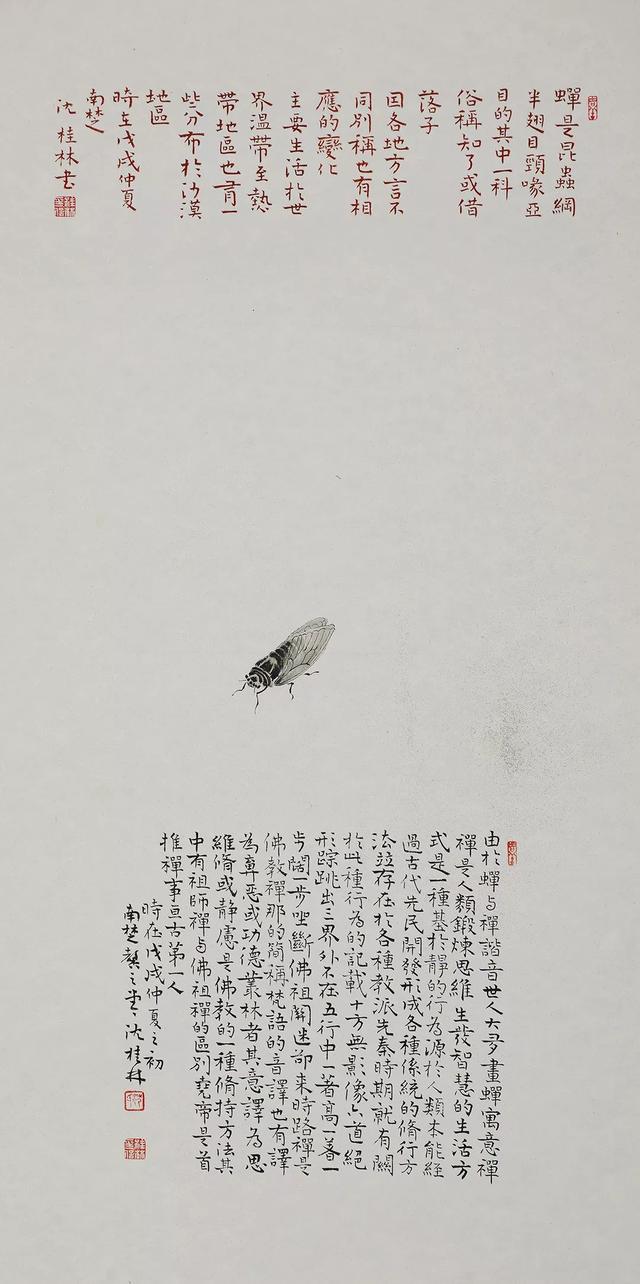 蟬是昆蟲綱
半翅目頸喙亞
目的其中一科
俗稱知了或借
落子
因各地方言不
同別稱也有相
應的變化
主要生活於世
界温帶至熱
帶地區也有一
些分布於沙漠
地區
時在戊戌仲夏
南楚
沈桂林書
由於蟬与禪諧音世人大多畫蟬寓意禪
禪是人類鍛煉思維生發智慧的生活方
式是一種基於静的行為源於人類本能經
過古代先民開發形成各種係統的脩行方
法並存在於各種教派先秦時期就有關
於此種行為的記載十方無影像六道絕
形踪跳出三界外不在五行中一著高一著一
步闊一步坐斷佛祖関迷卻來時路禪是
佛教禪那的简稱梵語的音譯也有譯
為棄惡或功德叢林者其意譯為思
維脩或静慮是佛教的一種脩持方法其
中有祖師禪与佛祖禪的區別堯帝是首
推禪事亘古第一人
時在戊戌仲夏之初
南楚龔之堂沈桂林